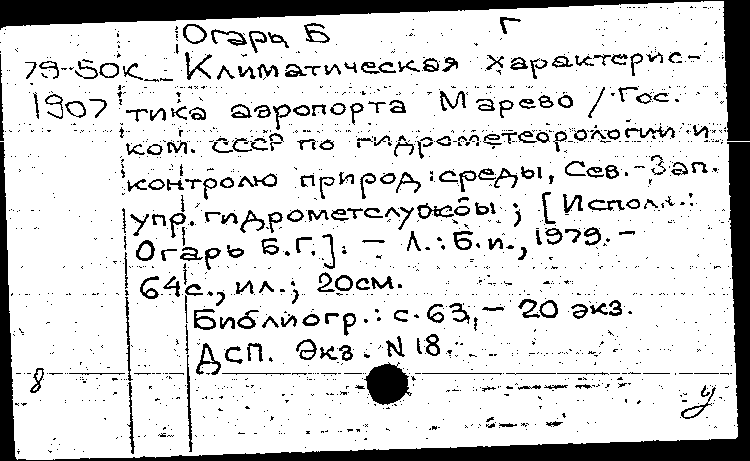 Огарь Б Г
79-50к Климатическая характерис-
1907 тика аэропорта Марево / Гос.
ком. СССР по гидрометеорологии и
контролю природ. среды, Сев.-Зап.
упр. гидрометслужбы ; [Исполн.:
Огарь Б.Г.]. – Л.: Б.и., 1979. –
64с., ил.; 20см.
Библиогр.: с.63. – 20 экз.
ДСП. Экз. N 18.
8 у